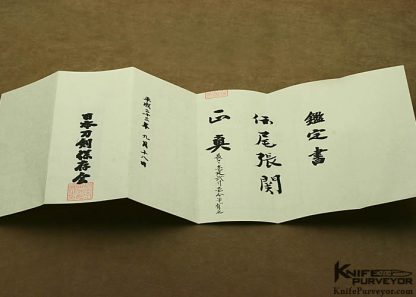 鑑定書
伝尾張関
正真
平成二十三年九月十八日
日本刀剣保存会
KNIFE
PURVEYOR
KnifePurveyor.com